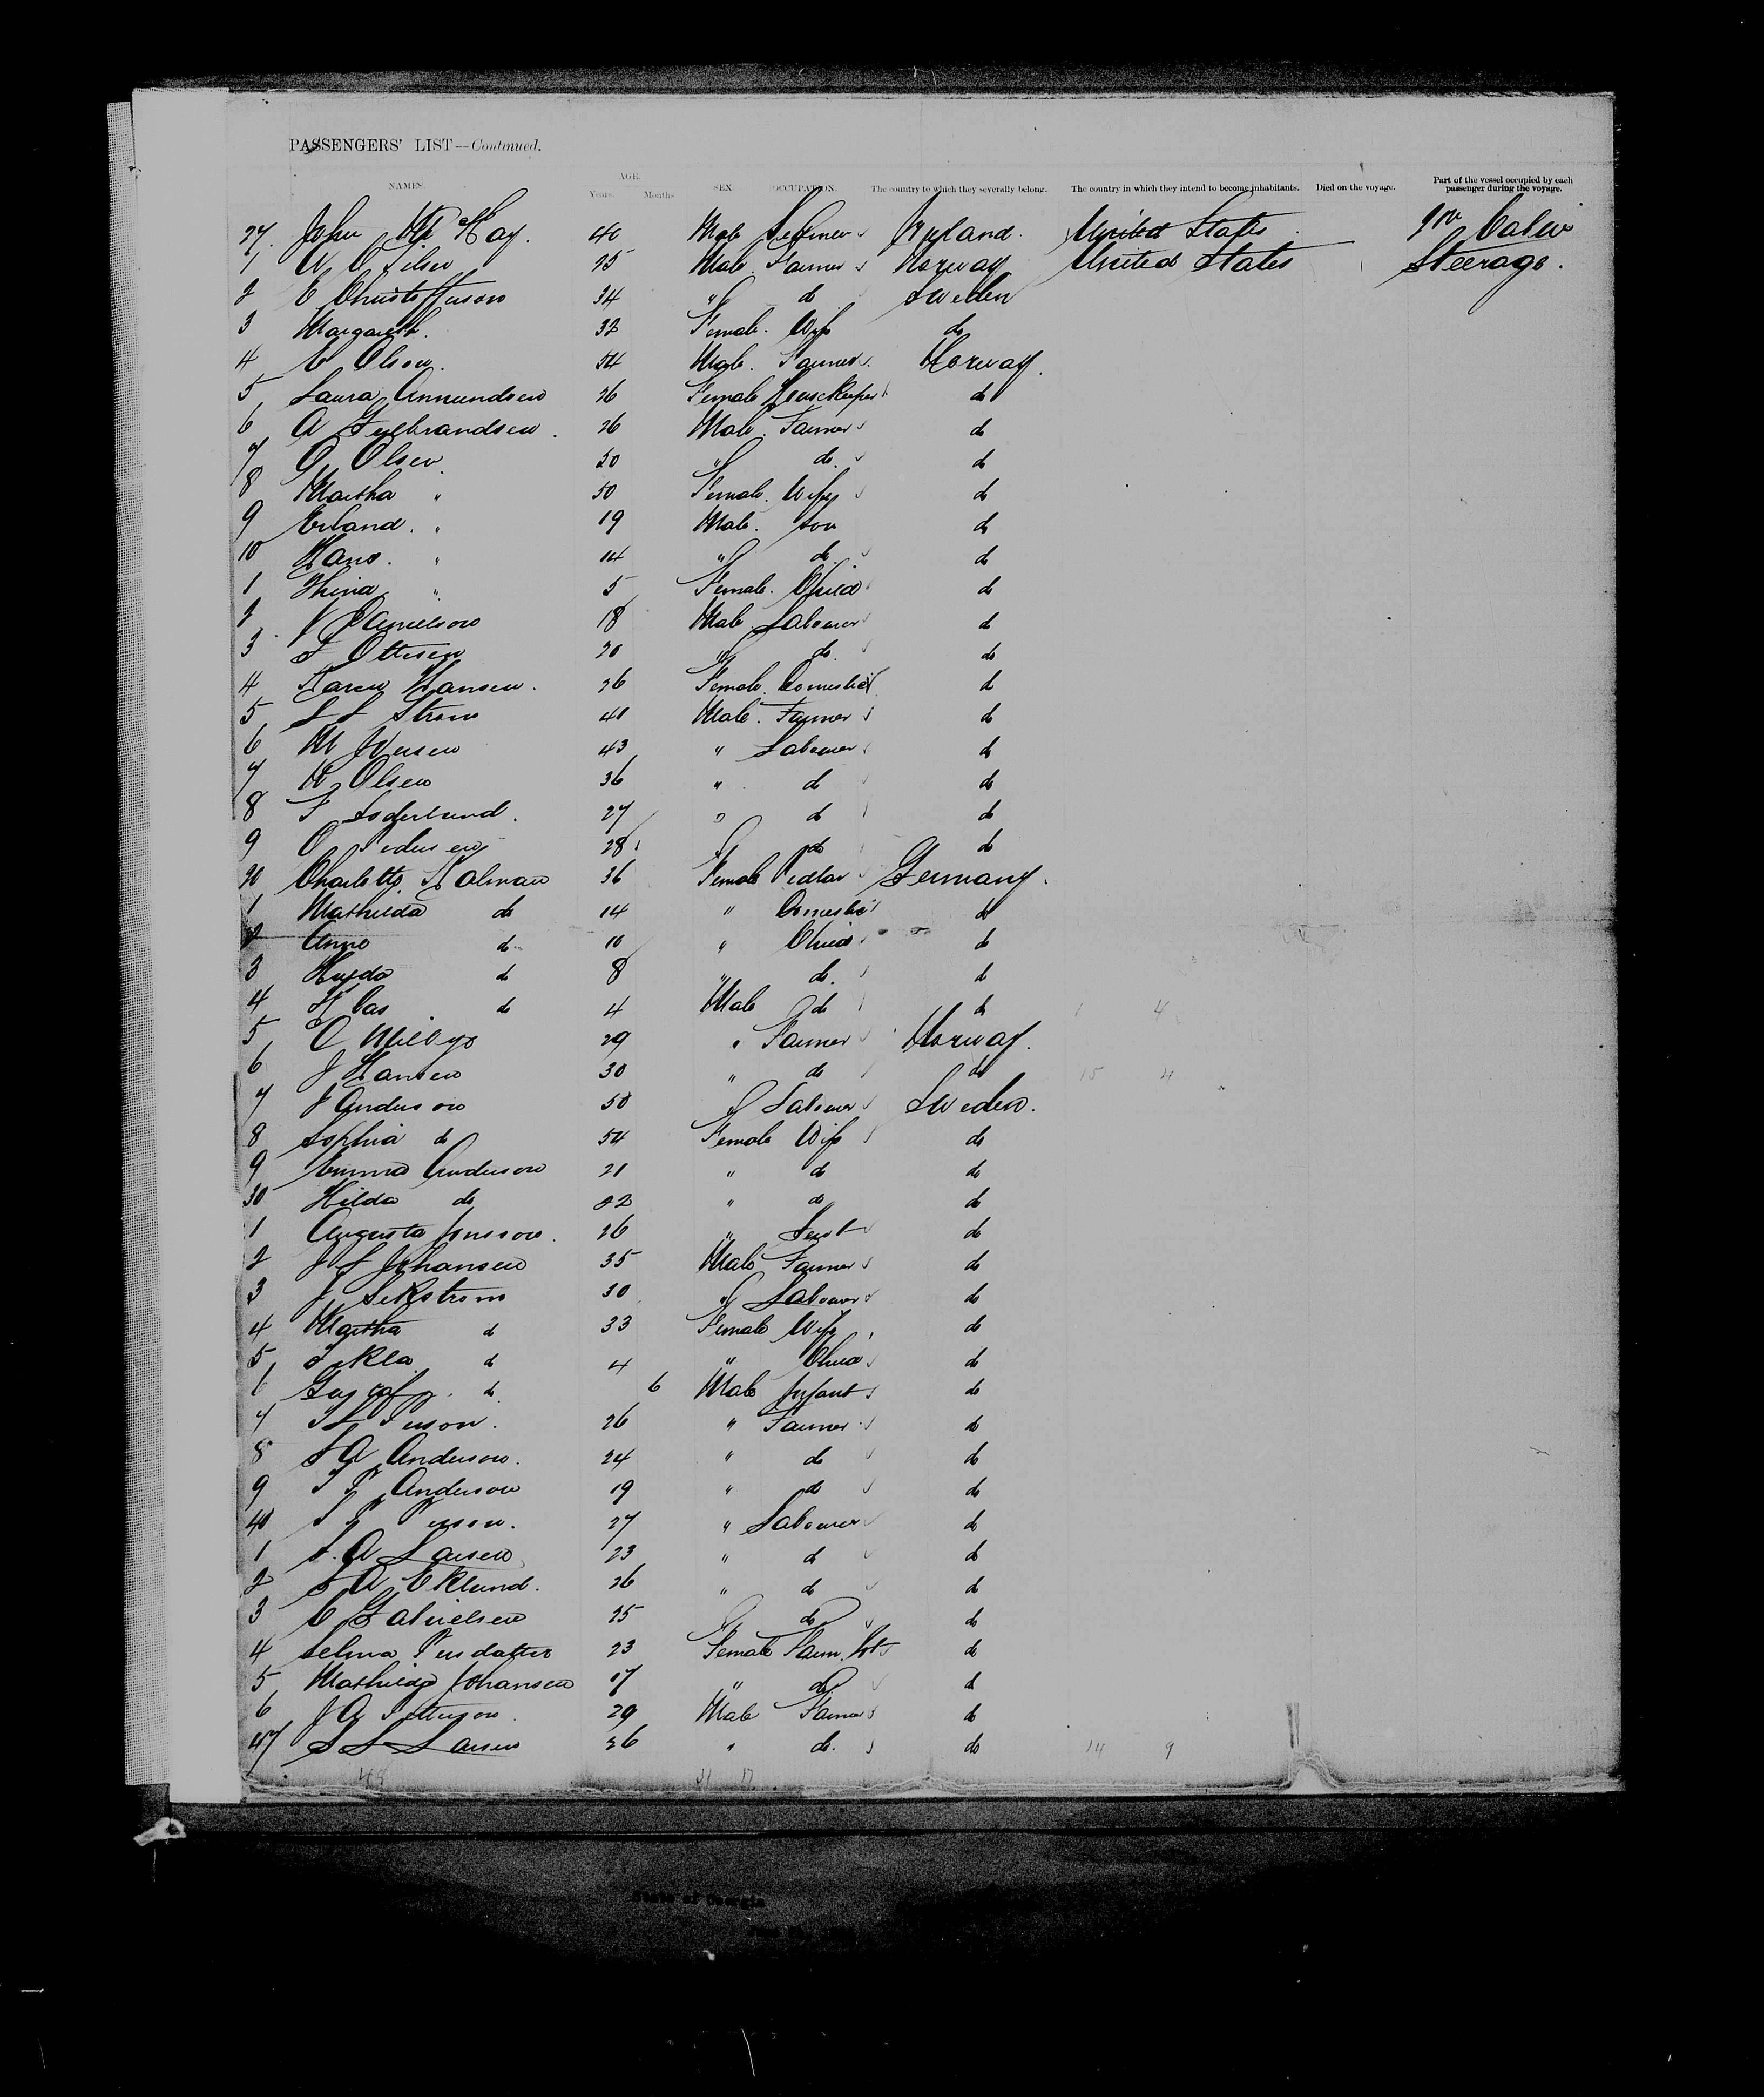 PASSENGERS' LIST—Continued.
NAMES. AGE. Years. Months. SEX. OCCUPATION. The country to which they severally belong. The country in which they intend to become inhabitants. Died on the voyage. Part of the vessel occupied by each passenger during the voyage.
27. John Kay. 40 Male United States Cabin
1 25 Male Farmer Norway United States Steerage.
2 34 " do Sweden
3 Margareth. 32 Female. Wife do
4 Olsen. 54 Male. Farmer. Norway.
5 Laura Amundsen 26 Female Housekeeper do
6 A Gulbrandsen. 26 Male. Farmer do
7 O Olsen 50 " do. do
8 Martha " 50 Female. Wife do
9 Erland. " 19 Male. son do
10 Hans. " 14 " do do
1 Thina " 5 Female. Child do
2 Danielson 18 Male Labourer do
3 Ottesen 20 " do. do
4 Karen Hansen. 26 Female. Domestic do
5 Strom 40 Male. Farmer do
6 M Iversen 43 " Labourer do
7 Olsen 36 " do do
8 27 " do do
9 O Pedersen 28 do do
20 Charlotte Kalman 36 Female Pedlar Germany.
1 Mathilda do 14 " Domestic do
2 Anna do 10 " Child do
3 do 8 " do. do
4 do 4 Male do do 1 4
5 29 " Farmer Norway.
6 J Hansen 30 " do do 15 4
7 J Anderson 50 " Labourer Sweden.
8 Sophia do 54 Female Wife do
9 Emma Anderson 21 " do do
30 Hilda do 22 " do do
1 Augusta Jonsson. 26 " Servt do
2 J S Johansen 35 Male Farmer do
3 J Sekstrom 30 " Labourer do
4 Martha do 33 Female Wife do
5 Tekla do 4 " Child do
6 Gustaf. do 6 Male Infant do
7 Person. 26 " Farmer do
8 A Anderson. 24 " do do
9 Anderson 19 " do do
40 Person. 27 " Labourer do
1 A Larsen 23 " do do
2 A Eklund. 26 " do do
3 C Gabrielsen 25 do do
4 Selma Persdatter 23 Female do
5 Mathilda Johansen 17 " do do
6 J A Petterson. 29 Male Farmer do
47 S L Larsen 26 " do. do 14 9
48 31 17
State of Georgia